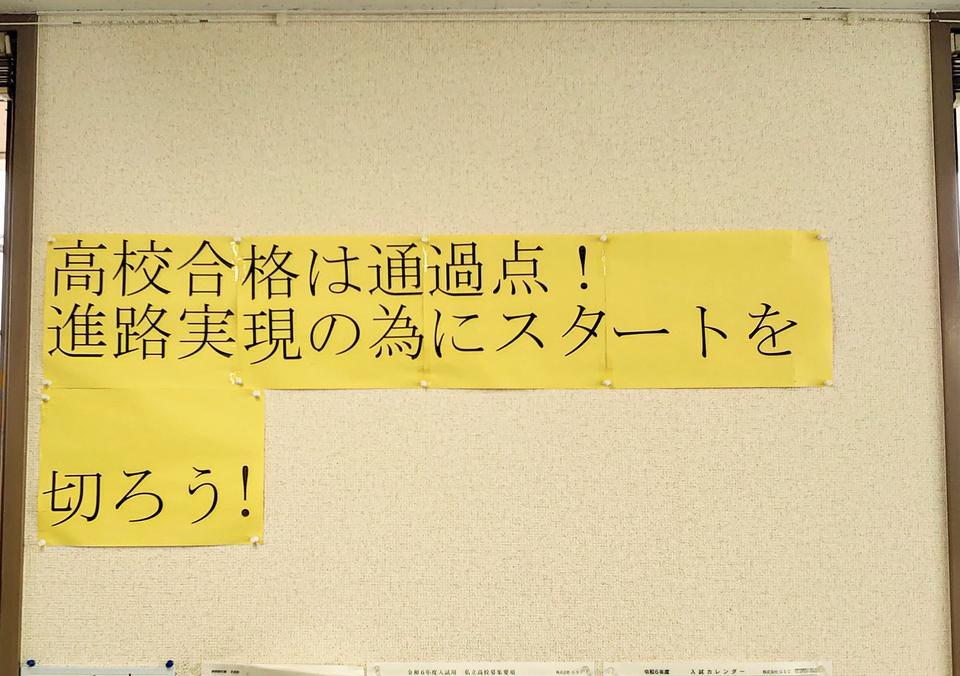 高校合格は通過点！
進路実現の為にスタートを
切ろう!
令和6年度入試用 私立高校募集要項
令和6年度 入試カレンダー